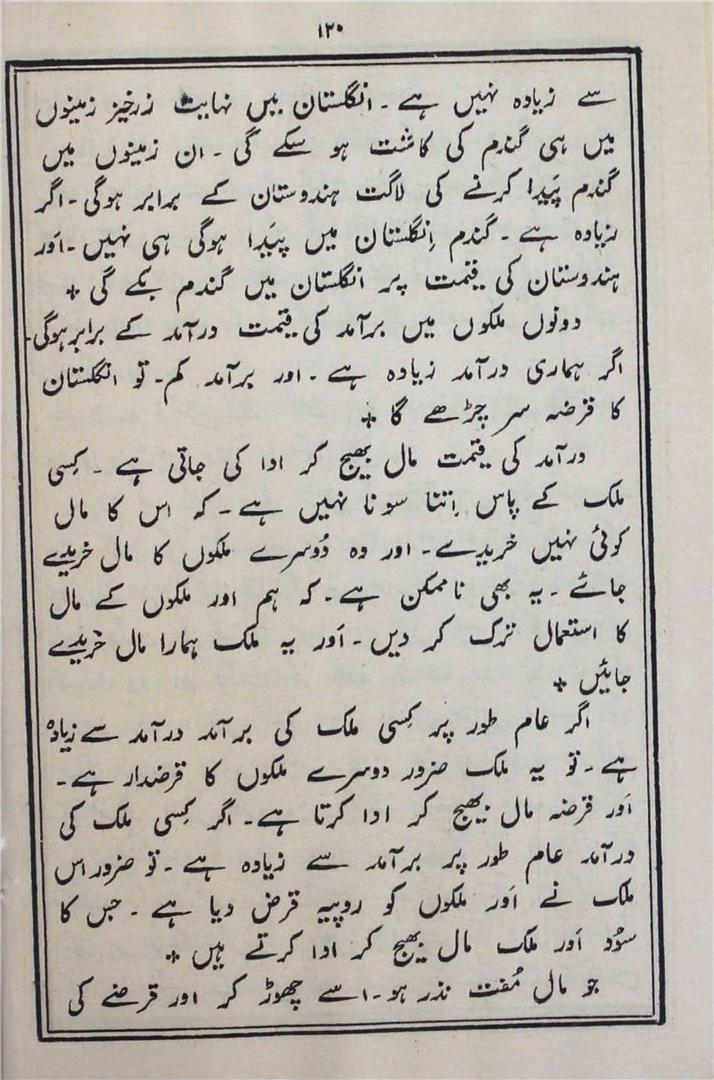 ۱۲۰
سے زیادہ نہیں ہے ۔ انگلستان میں نہایت زرخیز زمینوں
میں ہی گندم کی کاشت ہو سکے گی ۔ ان زمینوں میں
گندم پَیدا کرنے کی لاگت ہندوستان کے برابر ہوگی ۔ اگر
زیادہ ہے ۔ گندم اِنگلستان میں پَیدا ہوگی ہی نہیں ۔ اَور
ہندوستان کی قیمت پر انگلستان میں گندم بکے گی *
دونوں ملکوں میں برآمد کی قیمت درآمد کے برابر ہوگی ۔
اگر ہماری درآمد زیادہ ہے ۔ اور برآمد کم ۔ تو انگلستان
کا قرضہ سر چڑھے گا *
درآمد کی قیمت مال بھیج کر ادا کی جاتی ہے ۔ کِسی
ملک کے پاس اِتنا سونا نہیں ہے ۔ کہ اس کا مال
کوئی نہیں خریدے ۔ اور وہ دُوسرے ملکوں کا مال خریدے
جائے ۔ یہ بھی ناممکن ہے ۔ کہ ہم اور ملکوں کے مال
کا استعمال ترک کر دیں ۔ اَور یہ ملک ہمارا مال خریدے
جائیں *
اگر عام طور پر کِسی ملک کی برآمد درآمد سے زیادہ
ہے ۔ تو یہ ملک ضرور دوسرے ملکوں کا قرضدار ہے ۔
اَور قرضہ مال بھیج کر ادا کرتا ہے ۔ اگر کِسی ملک کی
درآمد عام طور پر برآمد سے زیادہ ہے ۔ تو ضرور اس
ملک نے اَور ملکوں کو روپیہ قرض دیا ہے ۔ جس کا
سوُد اَور ملک مال بھیج کر ادا کرتے ہیں *
جو مال مُفت نذر ہو ۔ اسے چھوڑ کر اور قرضے کی